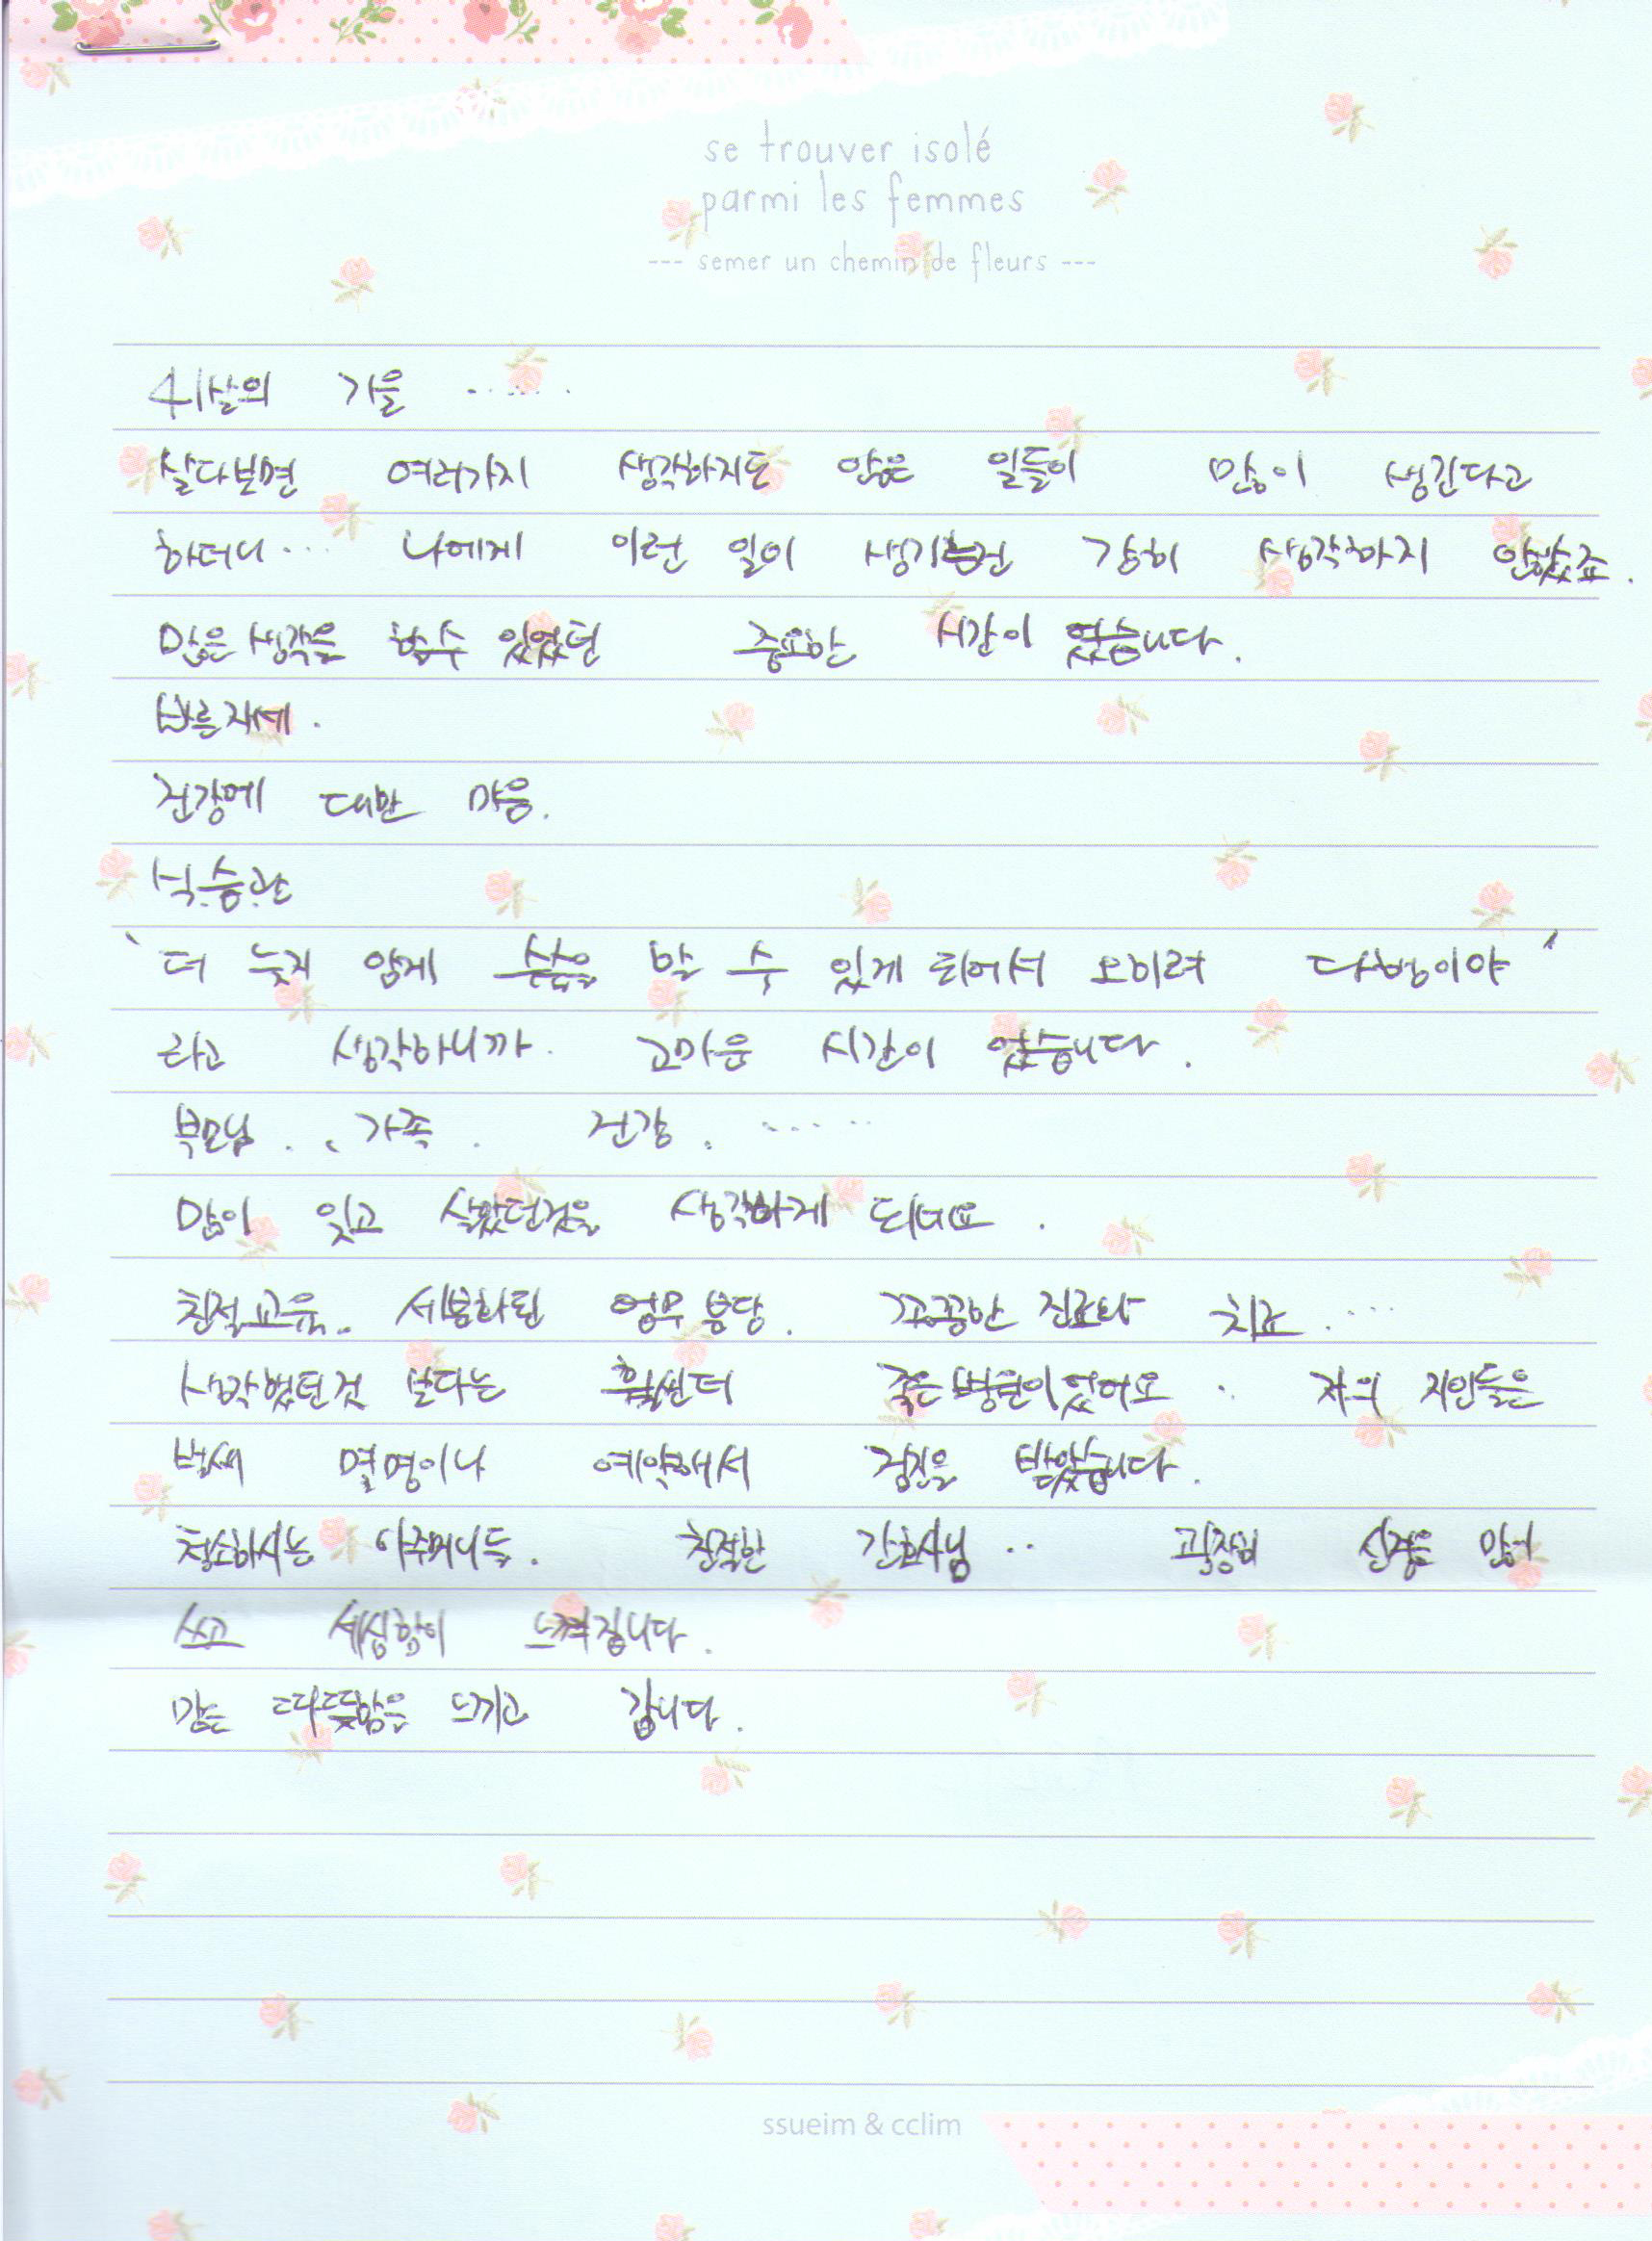 se trouver isolé
parmi les femmes
--- semer un chemin de fleurs ---
41살의 가을 ......
살다보면 여러가지 생각하지도 않은 일들이 많이 생긴다고
하더니... 나에게 이런 일이 생기는건 감히 생각하지 안했죠.
많은 생각을 할수 있었던 중요한 시간이 였습니다.
바른자세.
건강에 대한 마음.
식.습.관
'더 늦지 않게 수술을 할 수 있게 되어서 오히려 다행이야'
라고 생각하니까. 고마운 시간이 였습니다.
부모님.., 가족. 건강. .....
많이 잊고 살았던것을 생각하게 되네요.
친절교육.. 세분화된 업무 분담. 꼼꼼한 진료와 치료...
생각했던것 보다는 훨씬더 좋은병원이었어요.. 저의 지인들은
벌써 몇명이나 예약해서 검진을 받았습니다.
청소하시는 아주머니들. 친절한 간호사님.. 굉장히 신경을 많이
쓰고 세심함이 느껴집니다.
많은 따뜻함을 느끼고 갑니다.
ssueim & cclim